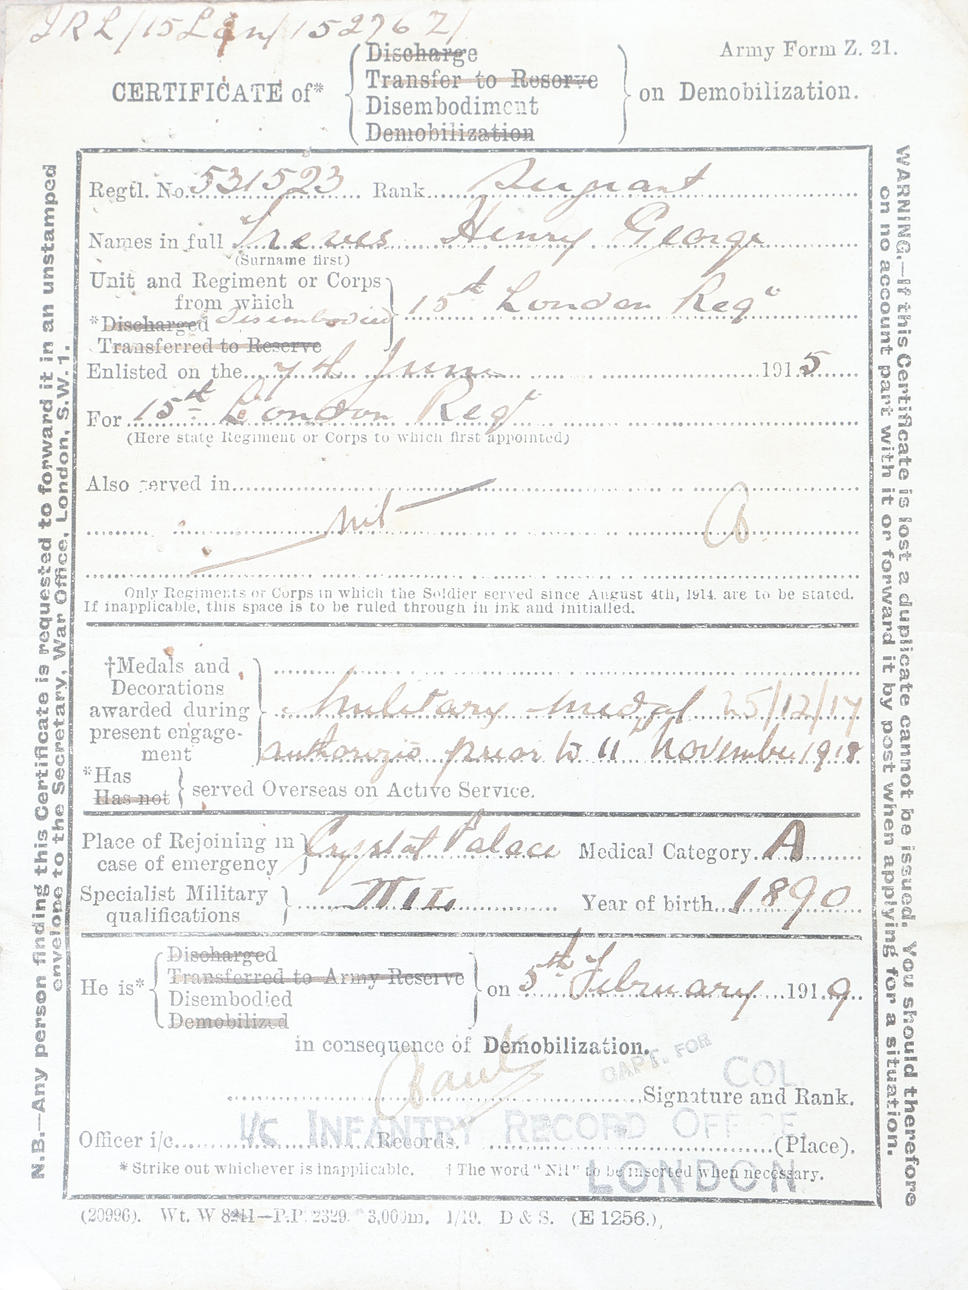 IRL/15Lon/15276Z/
Army Form Z. 21.
CERTIFICATE of* { Discharge
Transfer to Reserve
Disembodiment
Demobilization } on Demobilization.
Regtl. No. 531523 Rank Sergeant
Names in full Treves Henry George
(Surname first)
Unit and Regiment or Corps
from which
*Discharged disembodied
Transferred to Reserve
} 15th London Regt
Enlisted on the 7th June 1915
For 15th London Regt
(Here state Regiment or Corps to which first appointed)
Also served in
nil
Only Regiments or Corps in which the Soldier served since August 4th, 1914, are to be stated.
If inapplicable, this space is to be ruled through in ink and initialled.
†Medals and
Decorations
awarded during
present engage-
ment
Military Medal 25/12/17
prior to 11th November 1918
*Has
Has not
} served Overseas on Active Service.
Place of Rejoining in
case of emergency
} Crystal Palace Medical Category. A
Specialist Military
qualifications
} Nil Year of birth 1890
He is* { Discharged
Transferred to Army Reserve
Disembodied
Demobilized } on 5th February 1919
in consequence of Demobilization.
CAPT. FOR COL.
Signature and Rank.
Officer i/c Records. (Place).
I/C INFANTRY RECORD OFFICE
LONDON
*Strike out whichever is inapplicable. † The word "Nil" to be inserted when necessary.
(20996). Wt. W 8241—P.P. 2329. 3,000m. 1/19. D & S. (E 1256.)
N.B.—Any person finding this Certificate is requested to forward it in an unstamped
envelope to the Secretary, War Office, London, S.W. 1.
WARNING.—If this Certificate is lost a duplicate cannot be issued. You should therefore
on no account part with it or forward it by post when applying for a situation.